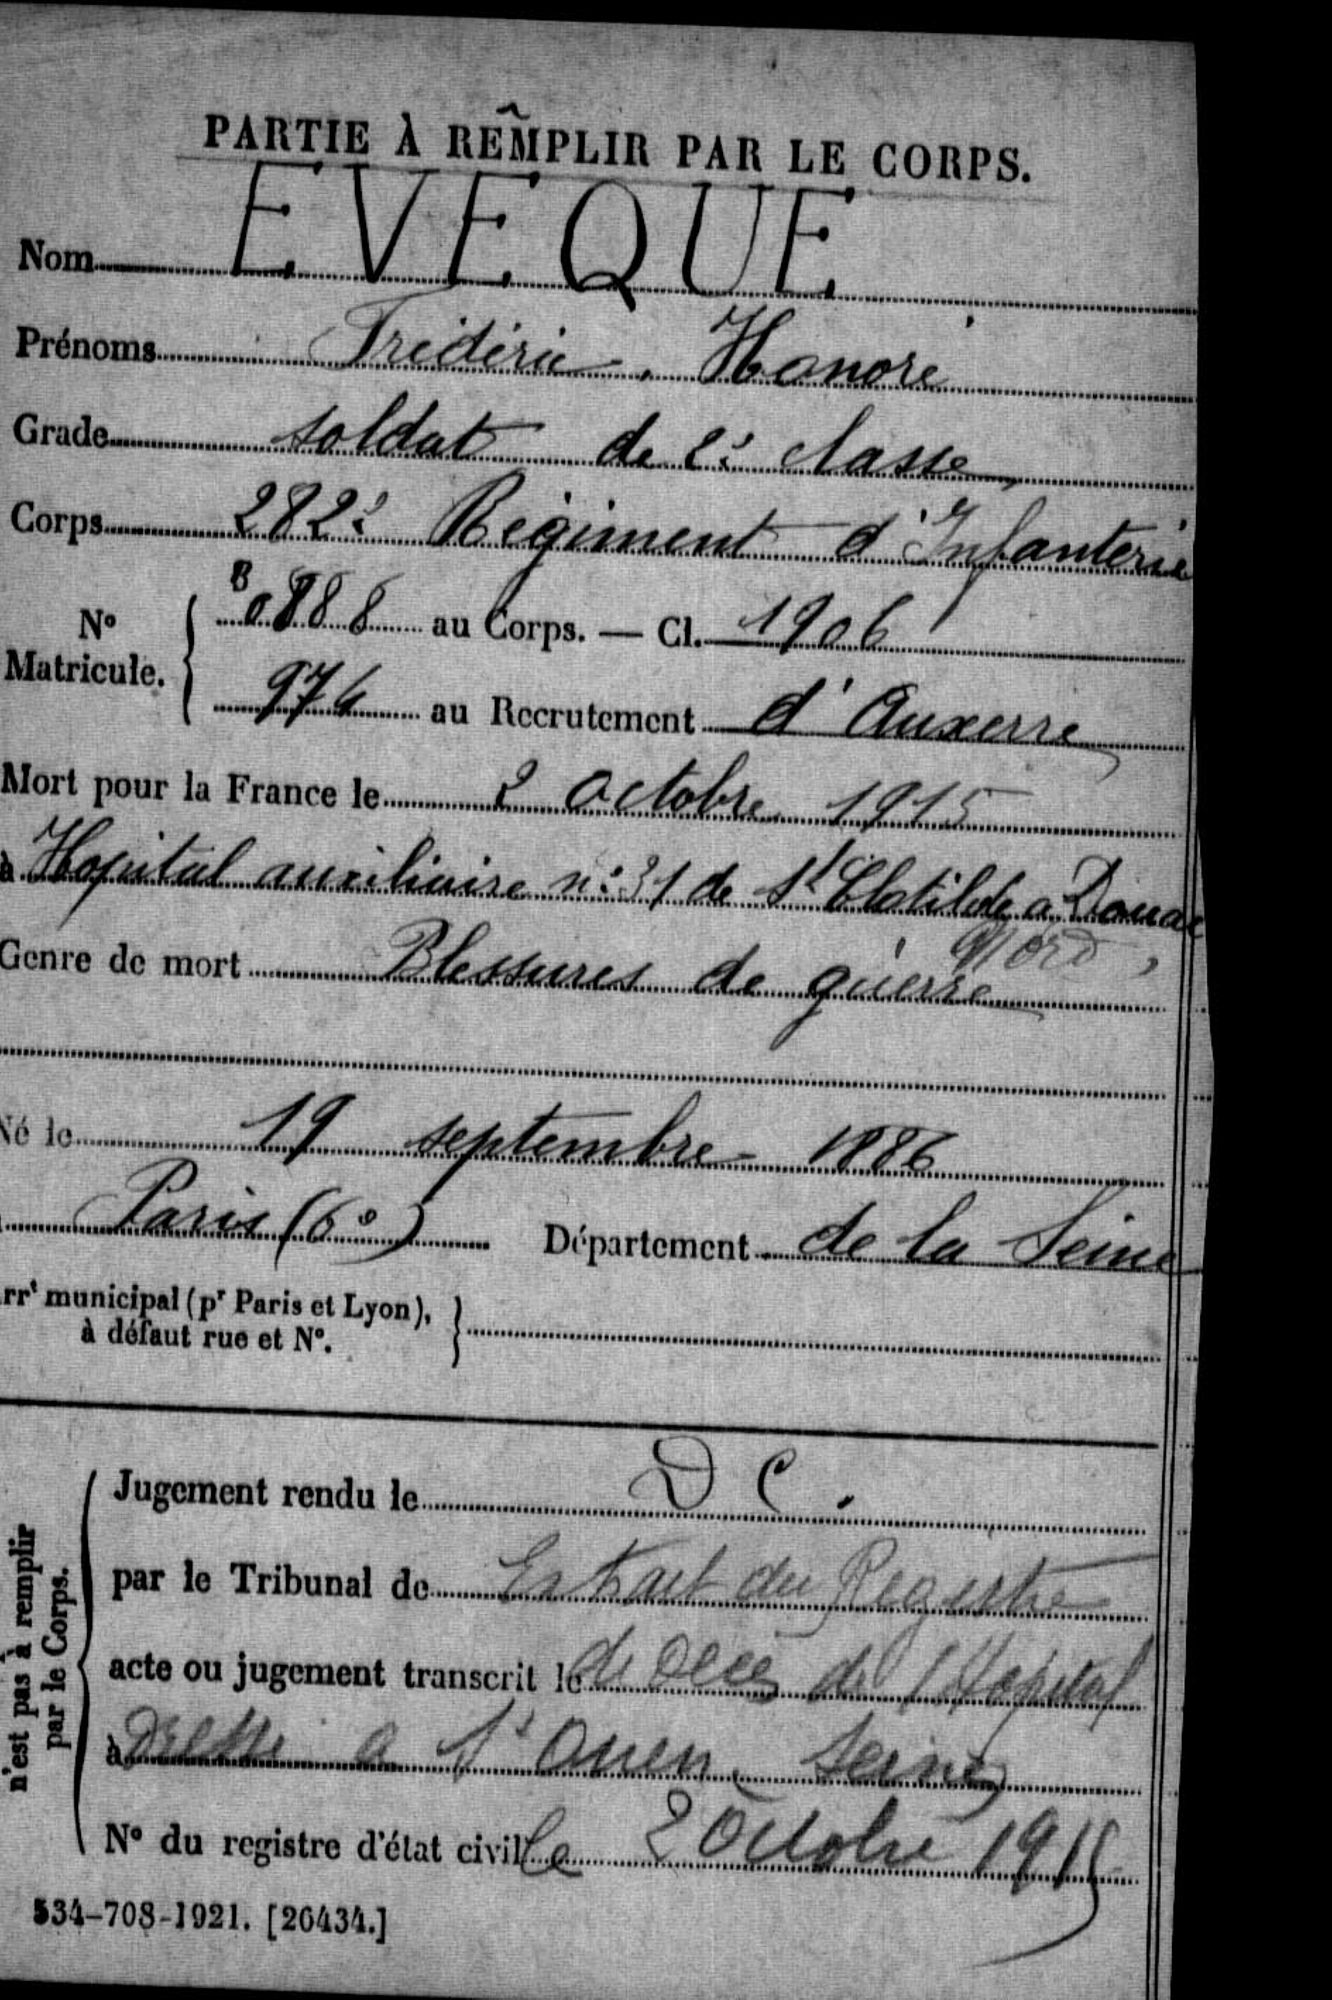 PARTIE À REMPLIR PAR LE CORPS.
Nom EVÊQUE
Prénoms Frédéric, Honoré
Grade soldat de 2e classe
Corps 282e Régiment d'Infanterie
N° Matricule. B 0888 au Corps. — Cl. 1906
974 au Recrutement d'Auxerre
Mort pour la France le 2 octobre 1915
à Hopital auxiliaire n° 31 de St Clotilde a Douai
Nord
Genre de mort Blessures de guerre
Né le 19 septembre 1886
Paris (6e) Département de la Seine
rrt municipal (pr Paris et Lyon),
à défaut rue et N°.
Jugement rendu le D C.
par le Tribunal de Extrait du Registre
acte ou jugement transcrit le de Décès de l'Hopital
à a St Ouen Seine
N° du registre d'état civil le 2 Octobre 1915
n'est pas à remplir
par le Corps.
534-708-1921. [26434.]